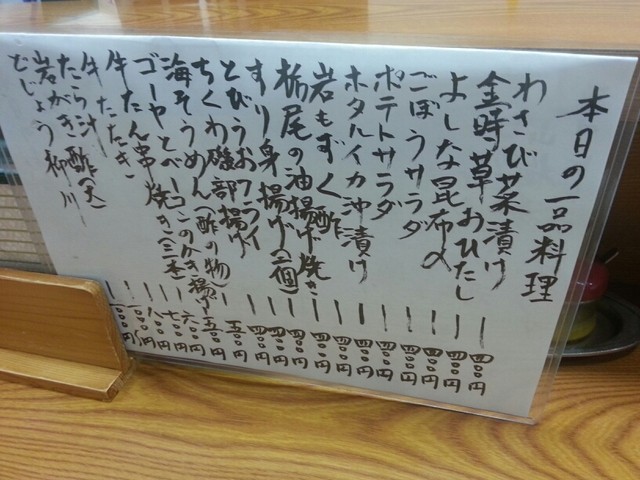 本日の一品料理
わさび菜漬け ー 四〇〇円
金時草おひたし ー 四〇〇円
よしな昆布〆 ー 四〇〇円
ごぼうサラダ ー 四〇〇円
ポテトサラダ ー 四〇〇円
ホタルイカ沖漬け ー 四〇〇円
岩もずく酢 ー 四〇〇円
栃尾の油揚げ焼き ー 四〇〇円
すり身揚げ(二個) ー 四〇〇円
とびうおフライ ー 四〇〇円
ちくわ磯部揚げ ー 四〇〇円
海そうめん(酢の物) ー 五〇〇円
ゴーヤとベーコンのかき揚げ ー 五〇〇円
牛たん串焼き(三本) ー 六〇〇円
牛たたき ー 七〇〇円
たら汁 ー 八〇〇円
岩がき酢(大)
どじょう柳川